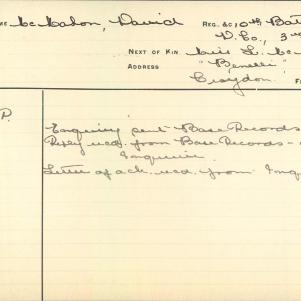 Mc Mahon, David
REG. &C. 10th Bat
D. Co., 3rd
NEXT OF KIN Miss L. Mc
ADDRESS "Benelli"
Croydon.
P.
Enquiry sent Base Records
Reply recd. from Base Records -
Inquirer.
Letter of ack. recd. from Inq